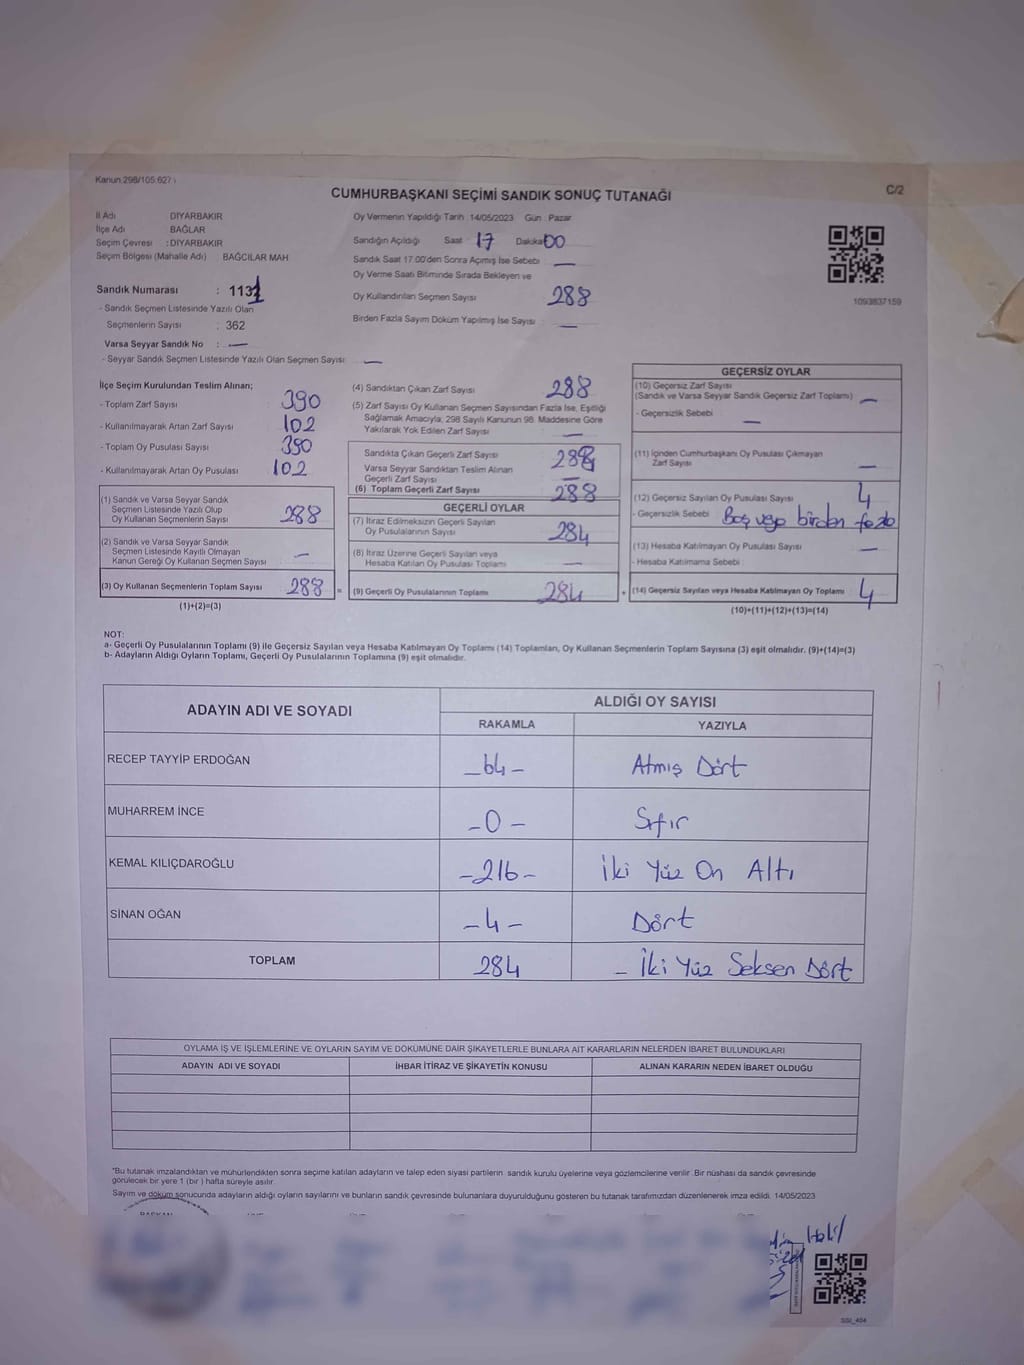 Kanun 298/105.627
CUMHURBAŞKANI SEÇİMİ SANDIK SONUÇ TUTANAĞI
C/2
İl Adı DİYARBAKIR
İlçe Adı BAĞLAR
Seçim Çevresi : DİYARBAKIR
Seçim Bölgesi (Mahalle Adı) : BAĞCILAR MAH
Sandık Numarası : 1131
- Sandık Seçmen Listesinde Yazılı Olan
Seçmenlerin Sayısı : 362
Varsa Seyyar Sandık No : —
- Seyyar Sandık Seçmen Listesinde Yazılı Olan Seçmen Sayısı: —
Oy Vermenin Yapıldığı Tarih : 14/05/2023 Gün : Pazar
Sandığın Açıldığı Saat 17 Dakika 00
Sandık Saat 17:00'den Sonra Açımış İse Sebebi —
Oy Verme Saati Bitiminde Sırada Bekleyen ve
Oy Kullandırılan Seçmen Sayısı 288
Birden Fazla Sayım Döküm Yapılmış İse Sayısı —
1093837159
İlçe Seçim Kurulundan Teslim Alınan;
- Toplam Zarf Sayısı 390
- Kullanılmayarak Artan Zarf Sayısı 102
- Toplam Oy Pusulası Sayısı 390
- Kullanılmayarak Artan Oy Pusulası 102
(1) Sandık ve Varsa Seyyar Sandık
Seçmen Listesinde Yazılı Olup
Oy Kullanan Seçmenlerin Sayısı 288
(2) Sandık ve Varsa Seyyar Sandık
Seçmen Listesinde Kayıtlı Olmayan
Kanun Gereği Oy Kullanan Seçmen Sayısı —
(3) Oy Kullanan Seçmenlerin Toplam Sayısı 288 =
(1)+(2)=(3)
(4) Sandıktan Çıkan Zarf Sayısı 288
(5) Zarf Sayısı Oy Kullanan Seçmen Sayısından Fazla İse, Eşitliği
Sağlamak Amacıyla, 298 Sayılı Kanunun 98. Maddesine Göre
Yakılarak Yok Edilen Zarf Sayısı —
Sandıkta Çıkan Geçerli Zarf Sayısı 288
Varsa Seyyar Sandıktan Teslim Alınan
Geçerli Zarf Sayısı —
(6) Toplam Geçerli Zarf Sayısı 288
GEÇERLİ OYLAR
(7) İtiraz Edilmeksizin Geçerli Sayılan
Oy Pusulalarının Sayısı 284
(8) İtiraz Üzerine Geçerli Sayılan veya
Hesaba Katılan Oy Pusulası Toplamı —
(9) Geçerli Oy Pusulalarının Toplamı 284 +
GEÇERSİZ OYLAR
(10) Geçersiz Zarf Sayısı
(Sandık ve Varsa Seyyar Sandık Geçersiz Zarf Toplamı) —
- Geçersizlik Sebebi —
(11) İçinden Cumhurbaşkanı Oy Pusulası Çıkmayan
Zarf Sayısı —
(12) Geçersiz Sayılan Oy Pusulası Sayısı 4
- Geçersizlik Sebebi Boş veya birden fazla
(13) Hesaba Katılmayan Oy Pusulası Sayısı —
- Hesaba Katılmama Sebebi
(14) Geçersiz Sayılan veya Hesaba Katılmayan Oy Toplamı 4
(10)+(11)+(12)+(13)=(14)
NOT:
a- Geçerli Oy Pusulalarının Toplamı (9) ile Geçersiz Sayılan veya Hesaba Katılmayan Oy Toplamı (14) Toplamları, Oy Kullanan Seçmenlerin Toplam Sayısına (3) eşit olmalıdır. (9)+(14)=(3)
b- Adayların Aldığı Oyların Toplamı, Geçerli Oy Pusulalarının Toplamına (9) eşit olmalıdır.
ADAYIN ADI VE SOYADI ALDIĞI OY SAYISI
RAKAMLA YAZIYLA
RECEP TAYYİP ERDOĞAN -64- Atmış Dört
MUHARREM İNCE -0- Sıfır
KEMAL KILIÇDAROĞLU -216- İki Yüz On Altı
SİNAN OĞAN -4- Dört
TOPLAM 284 - İki Yüz Seksen Dört
OYLAMA İŞ VE İŞLEMLERİNE VE OYLARIN SAYIM VE DÖKÜMÜNE DAİR ŞİKAYETLERLE BUNLARA AİT KARARLARIN NELERDEN İBARET BULUNDUKLARI
ADAYIN ADI VE SOYADI İHBAR İTİRAZ VE ŞİKAYETİN KONUSU ALINAN KARARIN NEDEN İBARET OLDUĞU
"Bu tutanak imzalandıktan ve mühürlendikten sonra seçime katılan adayların ve talep eden siyasi partilerin sandık kurulu üyelerine veya gözlemcilerine verilir. Bir nüshası da sandık çevresinde
görülecek bir yere 1 (bir) hafta süreyle asılır.
Sayım ve döküm sonucunda adayların aldığı oyların sayılarını ve bunların sandık çevresinde bulunanlara duyurulduğunu gösteren bu tutanak tarafımızdan düzenlenerek imza edildi. 14/05/2023
Halil